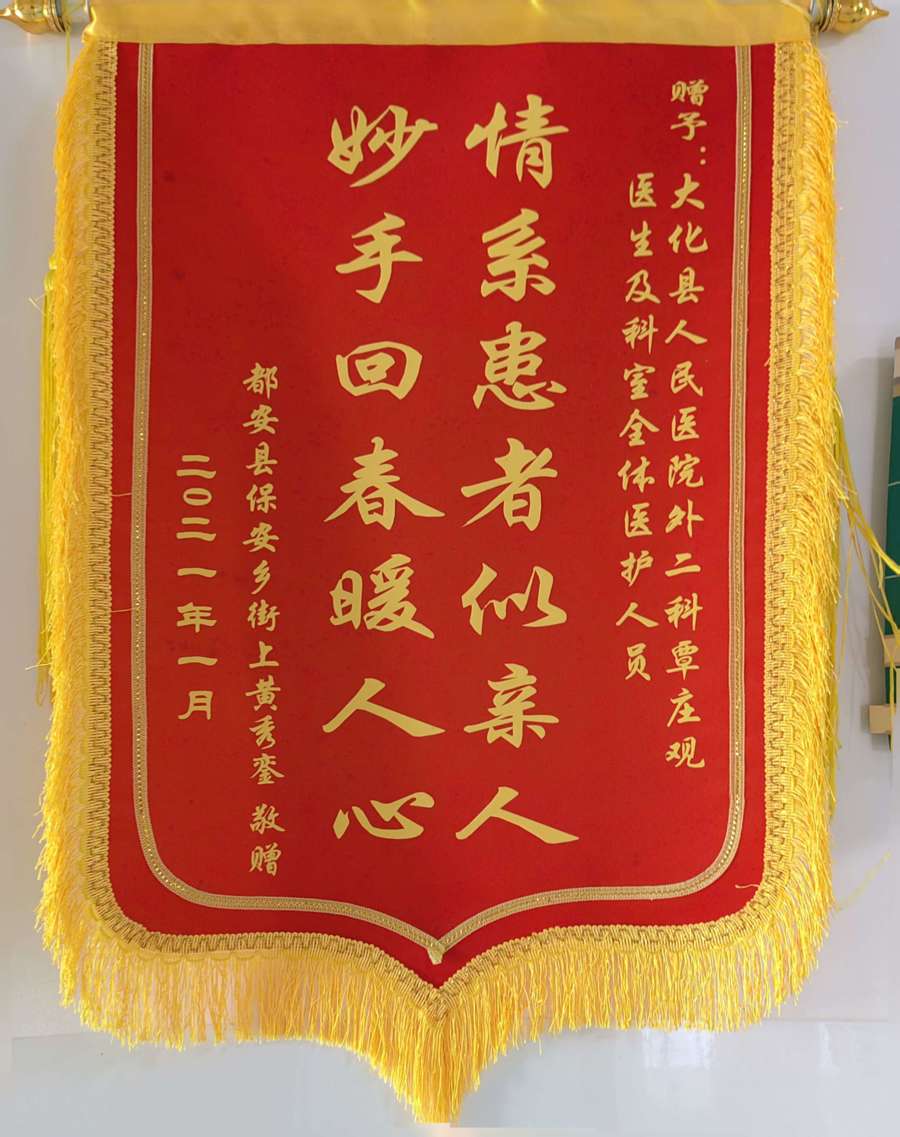 赠予：大化县人民医院外二科覃庄观
医生及科室全体医护人员
情系患者似亲人
妙手回春暖人心
都安县保安乡街上黄秀銮 敬赠
二〇二一年一月